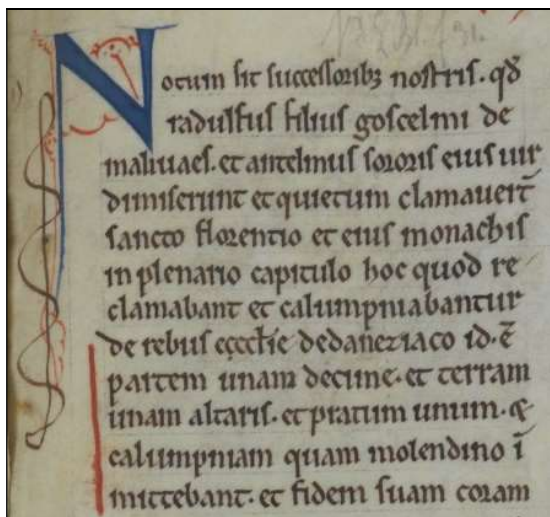 Notum sit successorib; nostris. qđ
radulfus filius goscelmi de
malivaes. et antelmus sororis eius uir
dimiserunt et quietum clamauer̄t
sancto florentio et eius monachis
in plenario capitulo hoc quod re
clamabant et calumpniabantur
de rebus ęcctie dedaneziaco id. ē
partem unam decime. et terram
unam altaris. et pratum unum. &
calumpniam quam molendino ī
mittebant. et fidem suam coram